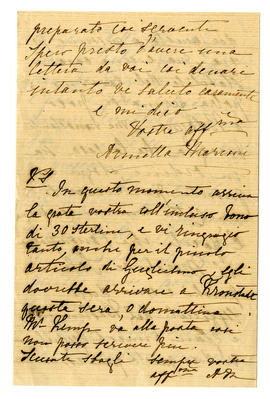 preparato coi
Spero presto d'avere una
lettera da voi coi denare
intanto vi saluto caramente
e mi dico
Vostra aff.ma
Annetta Marconi
P.S. In questo momento arriva
la grata vostra coll'incluso
di 30 sterline, e vi ringrazio
tanto, anche per il piccolo
articolo di Guglielmo, Egli
dovrebbe arrivare a Kronstadt
questa sera, o domattina.
Mr Kemp va alla posta cosi
non posso scrivere più.
Scusate sbagli sempre vostra
aff.ma A M